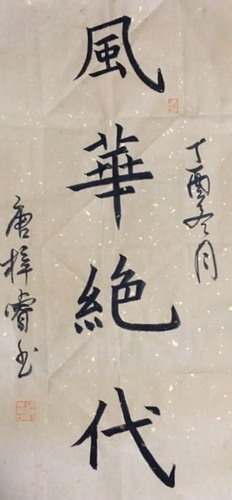 風華絕代
丁酉冬月
唐梓睿书